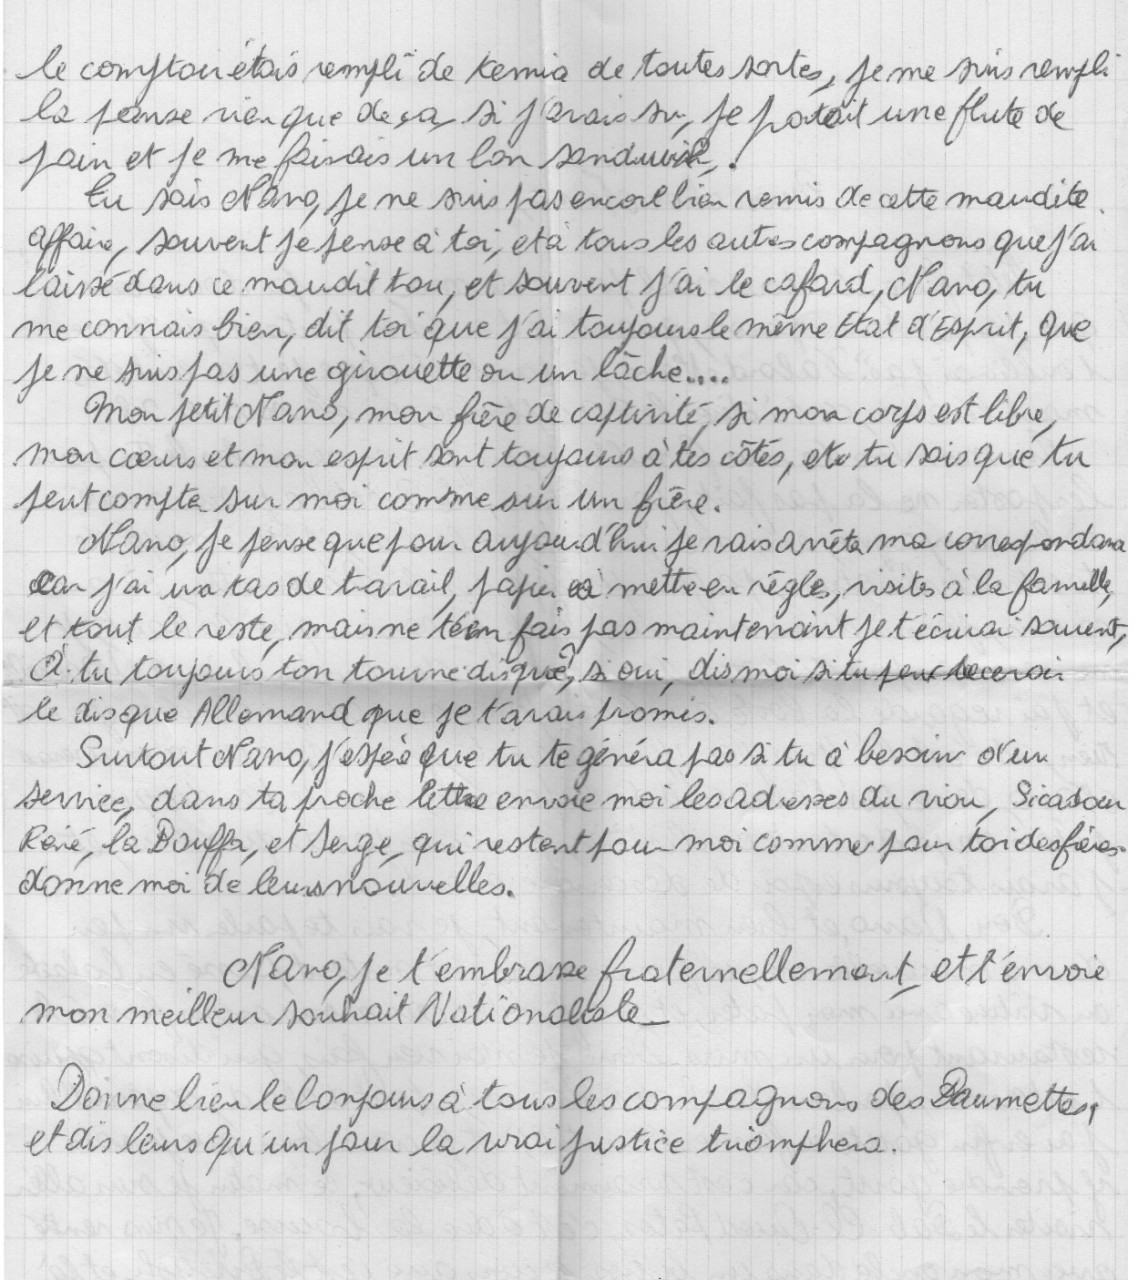 le comptoir étais rempli de Kemia de toutes sortes, je me suis rempli
la panse rien que de ça, si j'avais su, je portait une flute de
pain et je me faisais un bon sandwich,!
Tu sais Nano, je ne suis pas encore bien remis de cette maudite
affaire, souvent je pense à toi, et à tous les autres compagnons que j'ai
laissé dans ce maudit trou, et souvent j'ai le cafard, Nano, tu
me connais bien, dit toi que j'ai toujours le même Etat d'Esprit, que
je ne suis pas une girouette ou un lâche....
Mon petit Nano, mon frère de captivité, si mon corps est libre,
mon cœurs et mon esprit sont toujours à tes côtés, et tu sais que tu
peut compter sur moi comme sur un frère.
Nano, je pense que pour aujourd'hui je vais arrêter ma correspondance
car j'ai un tas de travail, papier à mettre en règles, visites à la famille,
et tout le reste, mais ne t'en fais pas maintenant je t'écrirai souvent,
A-tu toujours ton tourne disque, si oui, dis moi si tu peux recevoir
le disque Allemand que je t'avais promis.
Surtout Nano, j'espère que tu te génera pas si tu à besoin d'un
service, dans ta proche lettre envoie moi les adresses du
René, la Bouffa, et Serge, qui restent pour moi comme pour toi des frères
donne moi de leurs nouvelles.
Nano, je t'embrasse fraternellement, et t'envoie
mon meilleur souhait Nationaliste_
Donne bien le bonjours à tous les compagnons des Baumettes,
et dis leurs qu'un jour la vrai justice triomphera.